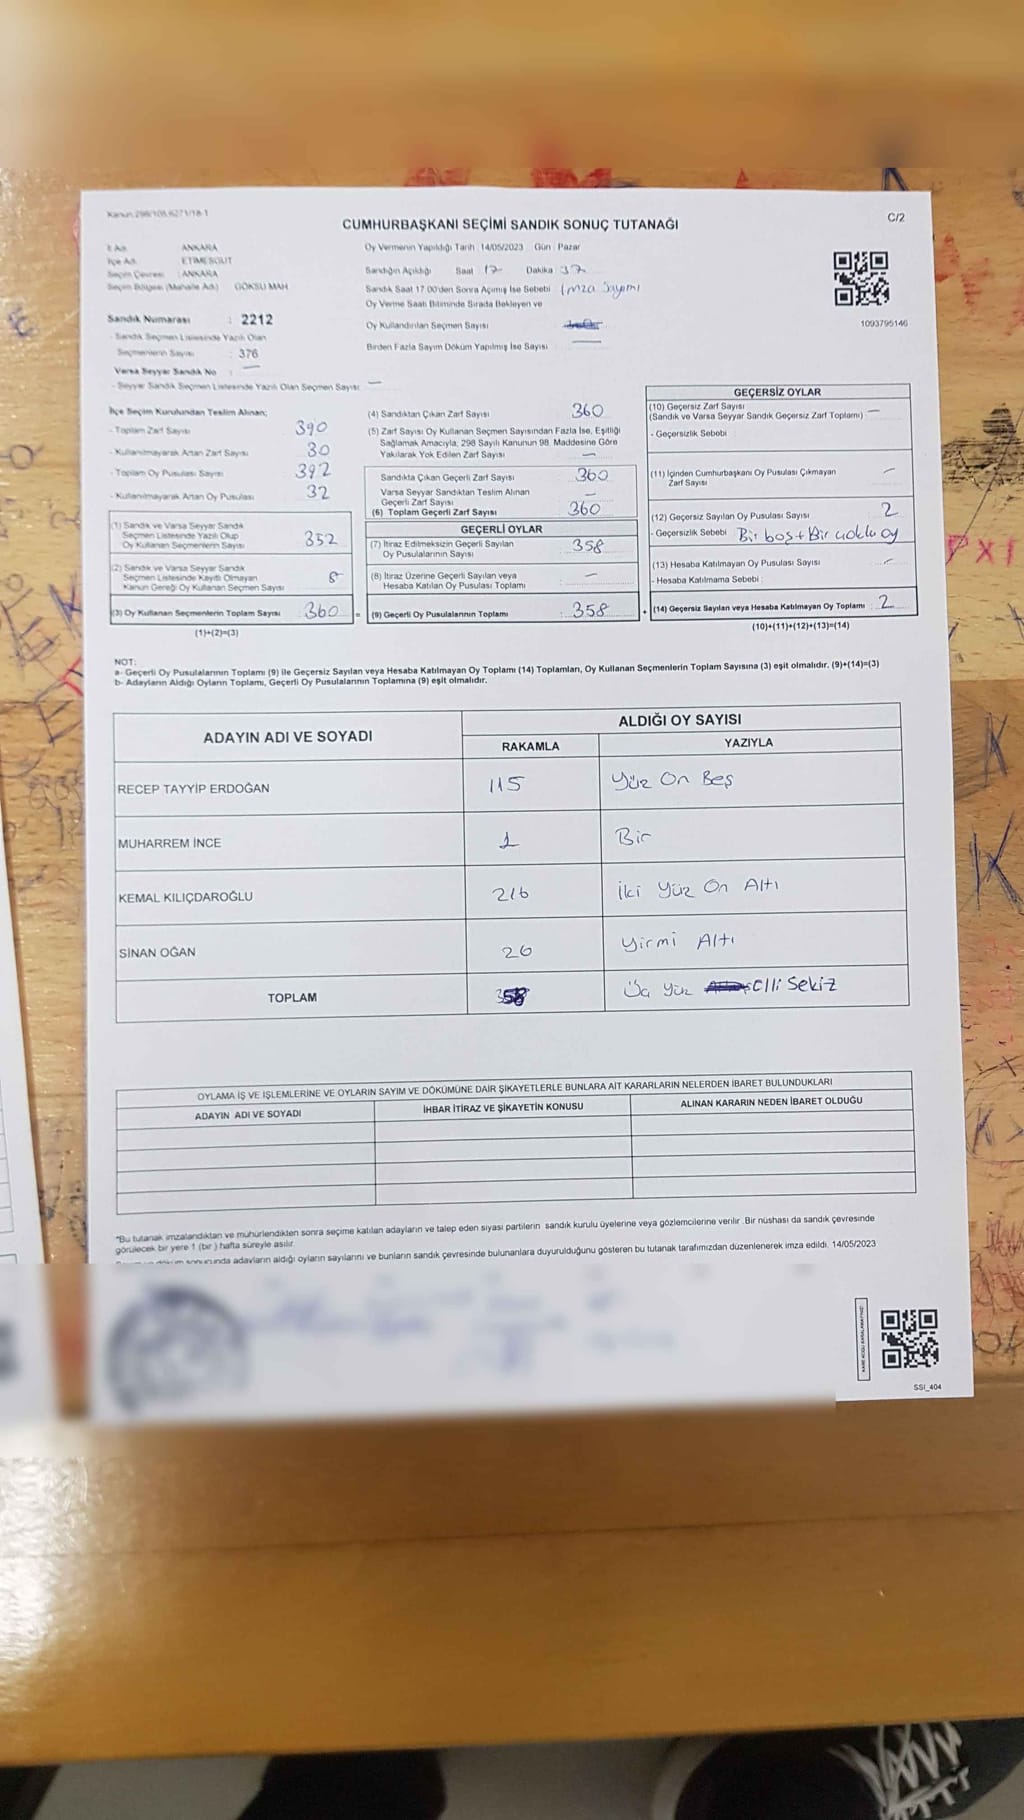 Kanun:298/105,6271/18-1
C/2
CUMHURBAŞKANI SEÇİMİ SANDIK SONUÇ TUTANAĞI
İl Adı ANKARA
İlçe Adı ETİMESGUT
Seçim Çevresi : ANKARA
Seçim Bölgesi (Mahalle Adı) GÖKSU MAH
Sandık Numarası : 2212
- Sandık Seçmen Listesinde Yazılı Olan
Seçmenlerin Sayısı : 376
Varsa Seyyar Sandık No : —
- Seyyar Sandık Seçmen Listesinde Yazılı Olan Seçmen Sayısı: —
Oy Vermenin Yapıldığı Tarih :14/05/2023 Gün : Pazar
Sandığın Açıldığı Saat : 17 Dakika : 37
Sandık Saat 17.00'den Sonra Açılmış İse Sebebi : İmza Sayımı
Oy Verme Saati Bitiminde Sırada Bekleyen ve
Oy Kullandırılan Seçmen Sayısı
Birden Fazla Sayım Döküm Yapılmış İse Sayısı : —
1093795146
İlçe Seçim Kurulundan Teslim Alınan;
- Toplam Zarf Sayısı 390
- Kullanılmayarak Artan Zarf Sayısı 30
- Toplam Oy Pusulası Sayısı 392
- Kullanılmayarak Artan Oy Pusulası 32
(1) Sandık ve Varsa Seyyar Sandık
Seçmen Listesinde Yazılı Olup
Oy Kullanan Seçmenlerin Sayısı 352
(2) Sandık ve Varsa Seyyar Sandık
Seçmen Listesinde Kayıtlı Olmayan
Kanun Gereği Oy Kullanan Seçmen Sayısı 8
(3) Oy Kullanan Seçmenlerin Toplam Sayısı 360 =
(1)+(2)=(3)
(4) Sandıktan Çıkan Zarf Sayısı 360
(5) Zarf Sayısı Oy Kullanan Seçmen Sayısından Fazla İse, Eşitliği
Sağlamak Amacıyla; 298 Sayılı Kanunun 98. Maddesine Göre
Yakılarak Yok Edilen Zarf Sayısı —
Sandıkta Çıkan Geçerli Zarf Sayısı 360
Varsa Seyyar Sandıktan Teslim Alınan
Geçerli Zarf Sayısı —
(6) Toplam Geçerli Zarf Sayısı 360
GEÇERLİ OYLAR
(7) İtiraz Edilmeksizin Geçerli Sayılan
Oy Pusulalarının Sayısı : 358
(8) İtiraz Üzerine Geçerli Sayılan veya
Hesaba Katılan Oy Pusulası Toplamı : —
(9) Geçerli Oy Pusulalarının Toplamı : 358 +
GEÇERSİZ OYLAR
(10) Geçersiz Zarf Sayısı
(Sandık ve Varsa Seyyar Sandık Geçersiz Zarf Toplamı) —
- Geçersizlik Sebebi :
(11) İçinden Cumhurbaşkanı Oy Pusulası Çıkmayan
Zarf Sayısı —
(12) Geçersiz Sayılan Oy Pusulası Sayısı 2
- Geçersizlik Sebebi : Bir boş + Bir çoklu oy
(13) Hesaba Katılmayan Oy Pusulası Sayısı —
- Hesaba Katılmama Sebebi :
(14) Geçersiz Sayılan veya Hesaba Katılmayan Oy Toplamı : 2
(10)+(11)+(12)+(13)=(14)
NOT:
a- Geçerli Oy Pusulalarının Toplamı (9) ile Geçersiz Sayılan veya Hesaba Katılmayan Oy Toplamı (14) Toplamları, Oy Kullanan Seçmenlerin Toplam Sayısına (3) eşit olmalıdır. (9)+(14)=(3)
b- Adayların Aldığı Oyların Toplamı, Geçerli Oy Pusulalarının Toplamına (9) eşit olmalıdır.
ADAYIN ADI VE SOYADI ALDIĞI OY SAYISI
RAKAMLA YAZIYLA
RECEP TAYYİP ERDOĞAN 115 Yüz On Beş
MUHARREM İNCE 1 Bir
KEMAL KILIÇDAROĞLU 216 İki Yüz On Altı
SİNAN OĞAN 26 Yirmi Altı
TOPLAM 358 Üç Yüz Elli Sekiz
OYLAMA İŞ VE İŞLEMLERİNE VE OYLARIN SAYIM VE DÖKÜMÜNE DAİR ŞİKAYETLERLE BUNLARA AİT KARARLARIN NELERDEN İBARET BULUNDUKLARI
ADAYIN ADI VE SOYADI İHBAR İTİRAZ VE ŞİKAYETİN KONUSU ALINAN KARARIN NEDEN İBARET OLDUĞU
*Bu tutanak imzalandıktan ve mühürlendikten sonra seçime katılan adayların ve talep eden siyasi partilerin sandık kurulu üyelerine veya gözlemcilerine verilir .Bir nüshası da sandık çevresinde
görülecek bir yere 1 (bir ) hafta süreyle asılır.
sonucunda adayların aldığı oyların sayılarını ve bunların sandık çevresinde bulunanlara duyurulduğunu gösteren bu tutanak tarafımızdan düzenlenerek imza edildi. 14/05/2023
SSI_404